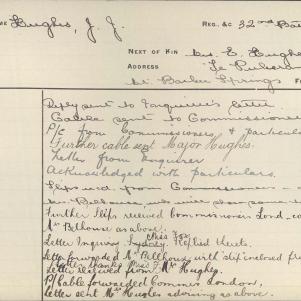 ME Hughes, J. J. REG. &C 32nd Ba
NEXT OF KIN Mrs. E. Hughe
ADDRESS "Le
Springs F
Reply sent to Enquirer's letter
Cable sent to Commissione
P/c from Commissioners & particula
Further cable sent Major Hughes.
Letter from Enquirer
Acknowledged with particulars.
Slips recd. from Commissioners
Further Slips received Commissioners Lond.
Mrs Belhouse as above.
Letter Inquiry Miss Fox, Sydney. Replied thereto.
Letter forwarded Mrs Belhouse with slip enclosed fro
Letter thanks Miss
Letter received from Mrs Hughes.
P/Cable forwarded Commsr London,
Letter sent Mrs Hughes advising as above.